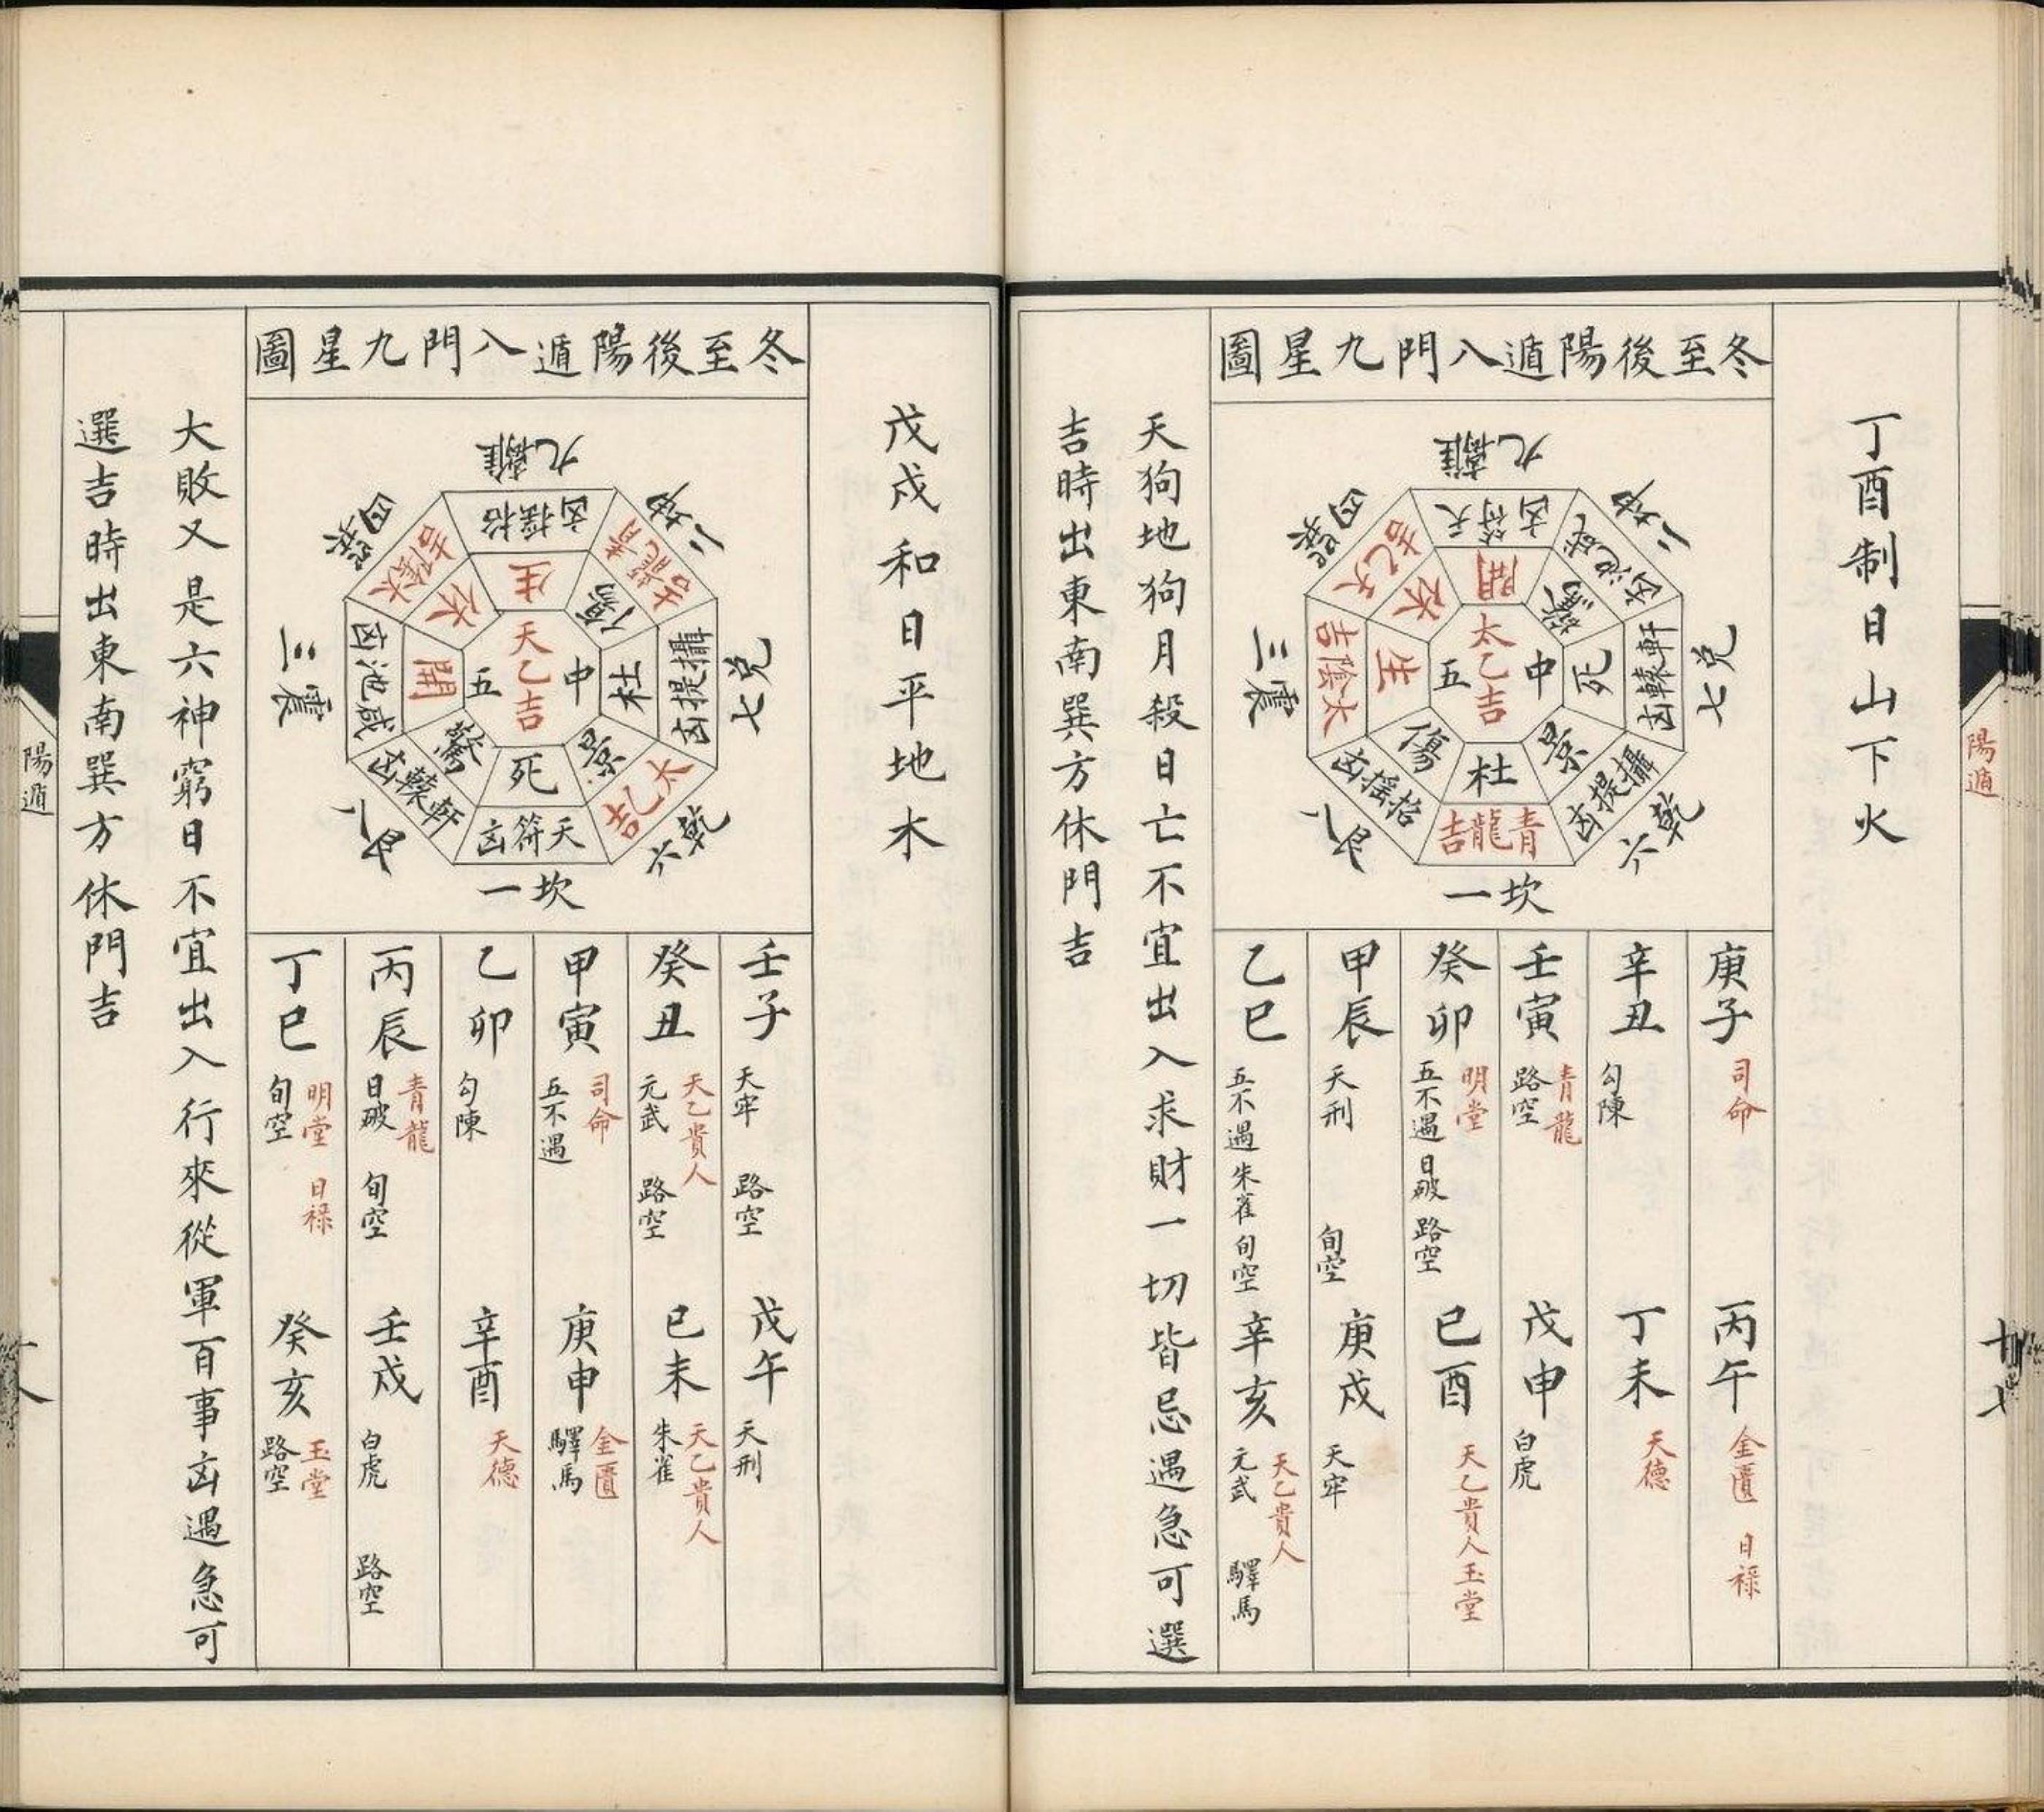 陽遁
十七
丁酉制日山下火
冬至後陽遁八門九星圖
九離
二坤
七兌
六乾
一坎
八艮
三震
四巽
天符凶
咸池凶
軒轅凶
攝提凶
青龍吉
招搖凶
太陰吉
天乙吉
開
驚
死
景
杜
傷
生
休
太乙吉
中
五
庚子
司命
丙午
金匱 日祿
辛丑
勾陳
丁未
天德
壬寅
青龍
路空
戊申
白虎
癸卯
明堂
五不遇 日破 路空
己酉
天乙貴人 玉堂
甲辰
天刑 旬空
庚戌
天牢
乙巳
五不遇 朱雀 旬空
辛亥
天乙貴人
元武 驛馬
天狗地狗月殺日亡不宜出入求財一切皆忌遇急可選
吉時出東南巽方休門吉
戊戌和日平地木
冬至後陽遁八門九星圖
九離
二坤
七兌
六乾
一坎
八艮
三震
四巽
招搖凶
青龍吉
攝提凶
太乙吉
天符凶
軒轅凶
咸池凶
太陰吉
生
傷
杜
景
死
驚
開
休
天乙吉
中
五
壬子
天牢 路空
戊午
天刑
癸丑
天乙貴人
元武 路空
己未
天乙貴人
朱雀
甲寅
司命
五不遇
庚申
金匱
驛馬
乙卯
勾陳
辛酉
天德
丙辰
青龍
日破 旬空
壬戌
白虎 路空
丁巳
明堂 日祿
旬空
癸亥
玉堂
路空
大敗又是六神窮日不宜出入行來從軍百事凶遇急可
選吉時出東南巽方休門吉
陽遁